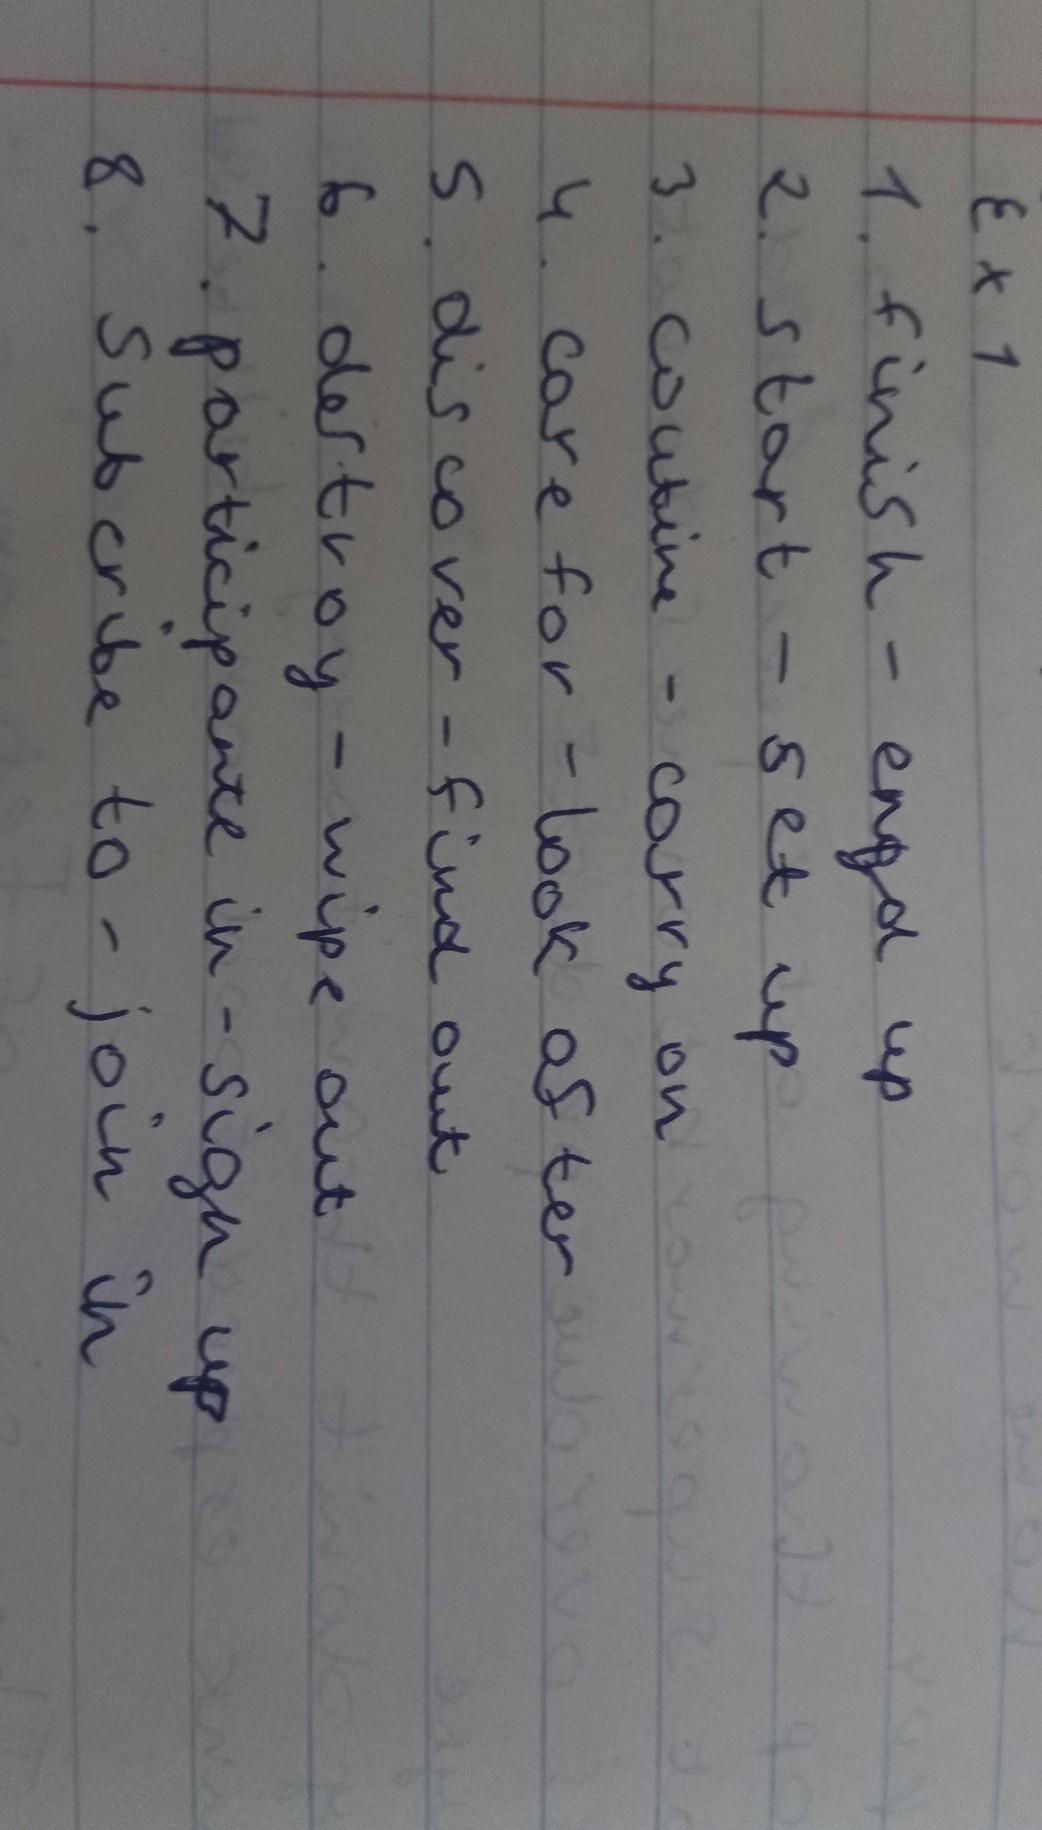 Ex 1
1. finish - engd up
2. start - set up
3. coutine - carry on
4. care for - look after
5. discover - find out
6. destroy - wipe out
7. participante in - sign up
8. Subcribe to - join in